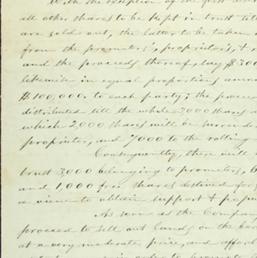 With the exception of the first
all other shares to be kept in trust till
are sold out, the latter to be taken
from the promoters, proprietors, &
and the proceeds thereof, say $300
likewise in equal proportions among
$100,000 to each party; the proceeds
distributed till the whole 3000 shares
which 2,000 shares will be
proprietor, and 7000 to the
Consequently, there will
trust 3000 belonging to promoters, 6
and 1,000 free shares destined for
a view to obtain support &
As soon as the Company
proceed to sell out Lands on the
at a very moderate price, and afford